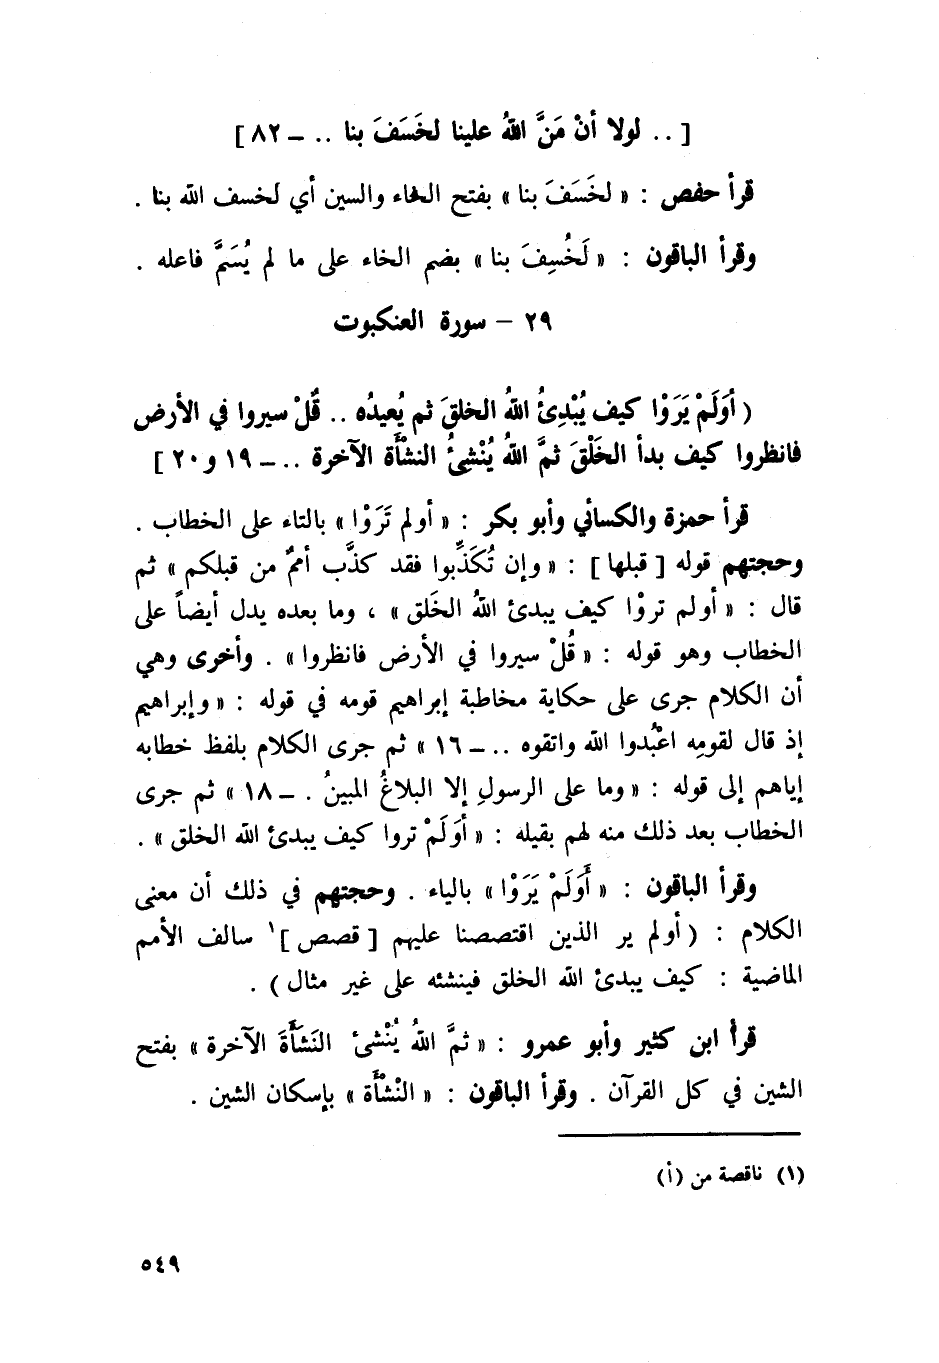 [ .. لولا أنْ مَنَّ اللهُ علينا لخَسَفَ بنا .. ـ ٨٢ ]
قرأ حفص : « لخَسَفَ بنا » بفتح الخاء والسين أي لخسف الله بنا .
وقرأ الباقون : « لَخُسِفَ بنا » بضم الخاء على ما لم يُسَمَّ فاعله .
٢٩ – سورة العنكبوت
( أوَلَمْ يَرَوْا كيف يُبْدِئُ اللهُ الخلقَ ثم يُعيدُه .. قُلْ سيروا في الأرض
فانظروا كيف بدأ الخَلْقَ ثمَّ اللهُ يُنْشِئُ النشْأَة الآخرة .. ـ ١٩ و ٢٠ ]
قرأ حمزة والكسائي وأبو بكر : « أولم تَرَوْا » بالتاء على الخطاب .
وحجتهم قوله [ قبلها ] : « وإن تُكَذِّبوا فقد كذَّب أممٌ من قبلكم » ثم
قال : « أولم تروْا كيف يبدئ اللهُ الخَلق » ، وما بعده يدل أيضاً على
الخطاب وهو قوله : « قُلْ سيروا في الأرض فانظروا » . وأخرى وهي
أن الكلام جرى على حكاية مخاطبة إبراهيم قومه في قوله : « وإبراهيم
إذ قال لقومِه اعْبُدوا الله واتقوه .. ـ ١٦ » ثم جرى الكلام بلفظ خطابه
إياهم إلى قوله : « وما على الرسولِ إلا البلاغُ المبينُ . ـ ١٨ » ثم جرى
الخطاب بعد ذلك منه لهم بقيله : « أوَلَمْ تروا كيف يبدئ الله الخلق » .
وقرأ الباقون : « أَوَلَمْ يَرَوْا » بالياء . وحجتهم في ذلك أن معنى
الكلام : ( أولم ير الذين اقتصصنا عليهم [ قصص ]١ سالف الأمم
الماضية : كيف يبدئ الله الخلق فينشئه على غير مثال ) .
قرأ ابن كثير وأبو عمرو : « ثمَّ اللهُ يُنْشئ النَشَأَةَ الآخرة » بفتح
الشين في كل القرآن . وقرأ الباقون : « النْشْأَة » بإسكان الشين .
(١) ناقصة من (أ)
٥٤٩